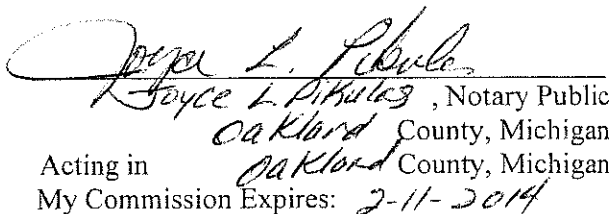 Joyce L. Pikulas
Joyce L Pikulas, Notary Public
Oakland County, Michigan
Acting in Oakland County, Michigan
My Commission Expires: 2-11-2014